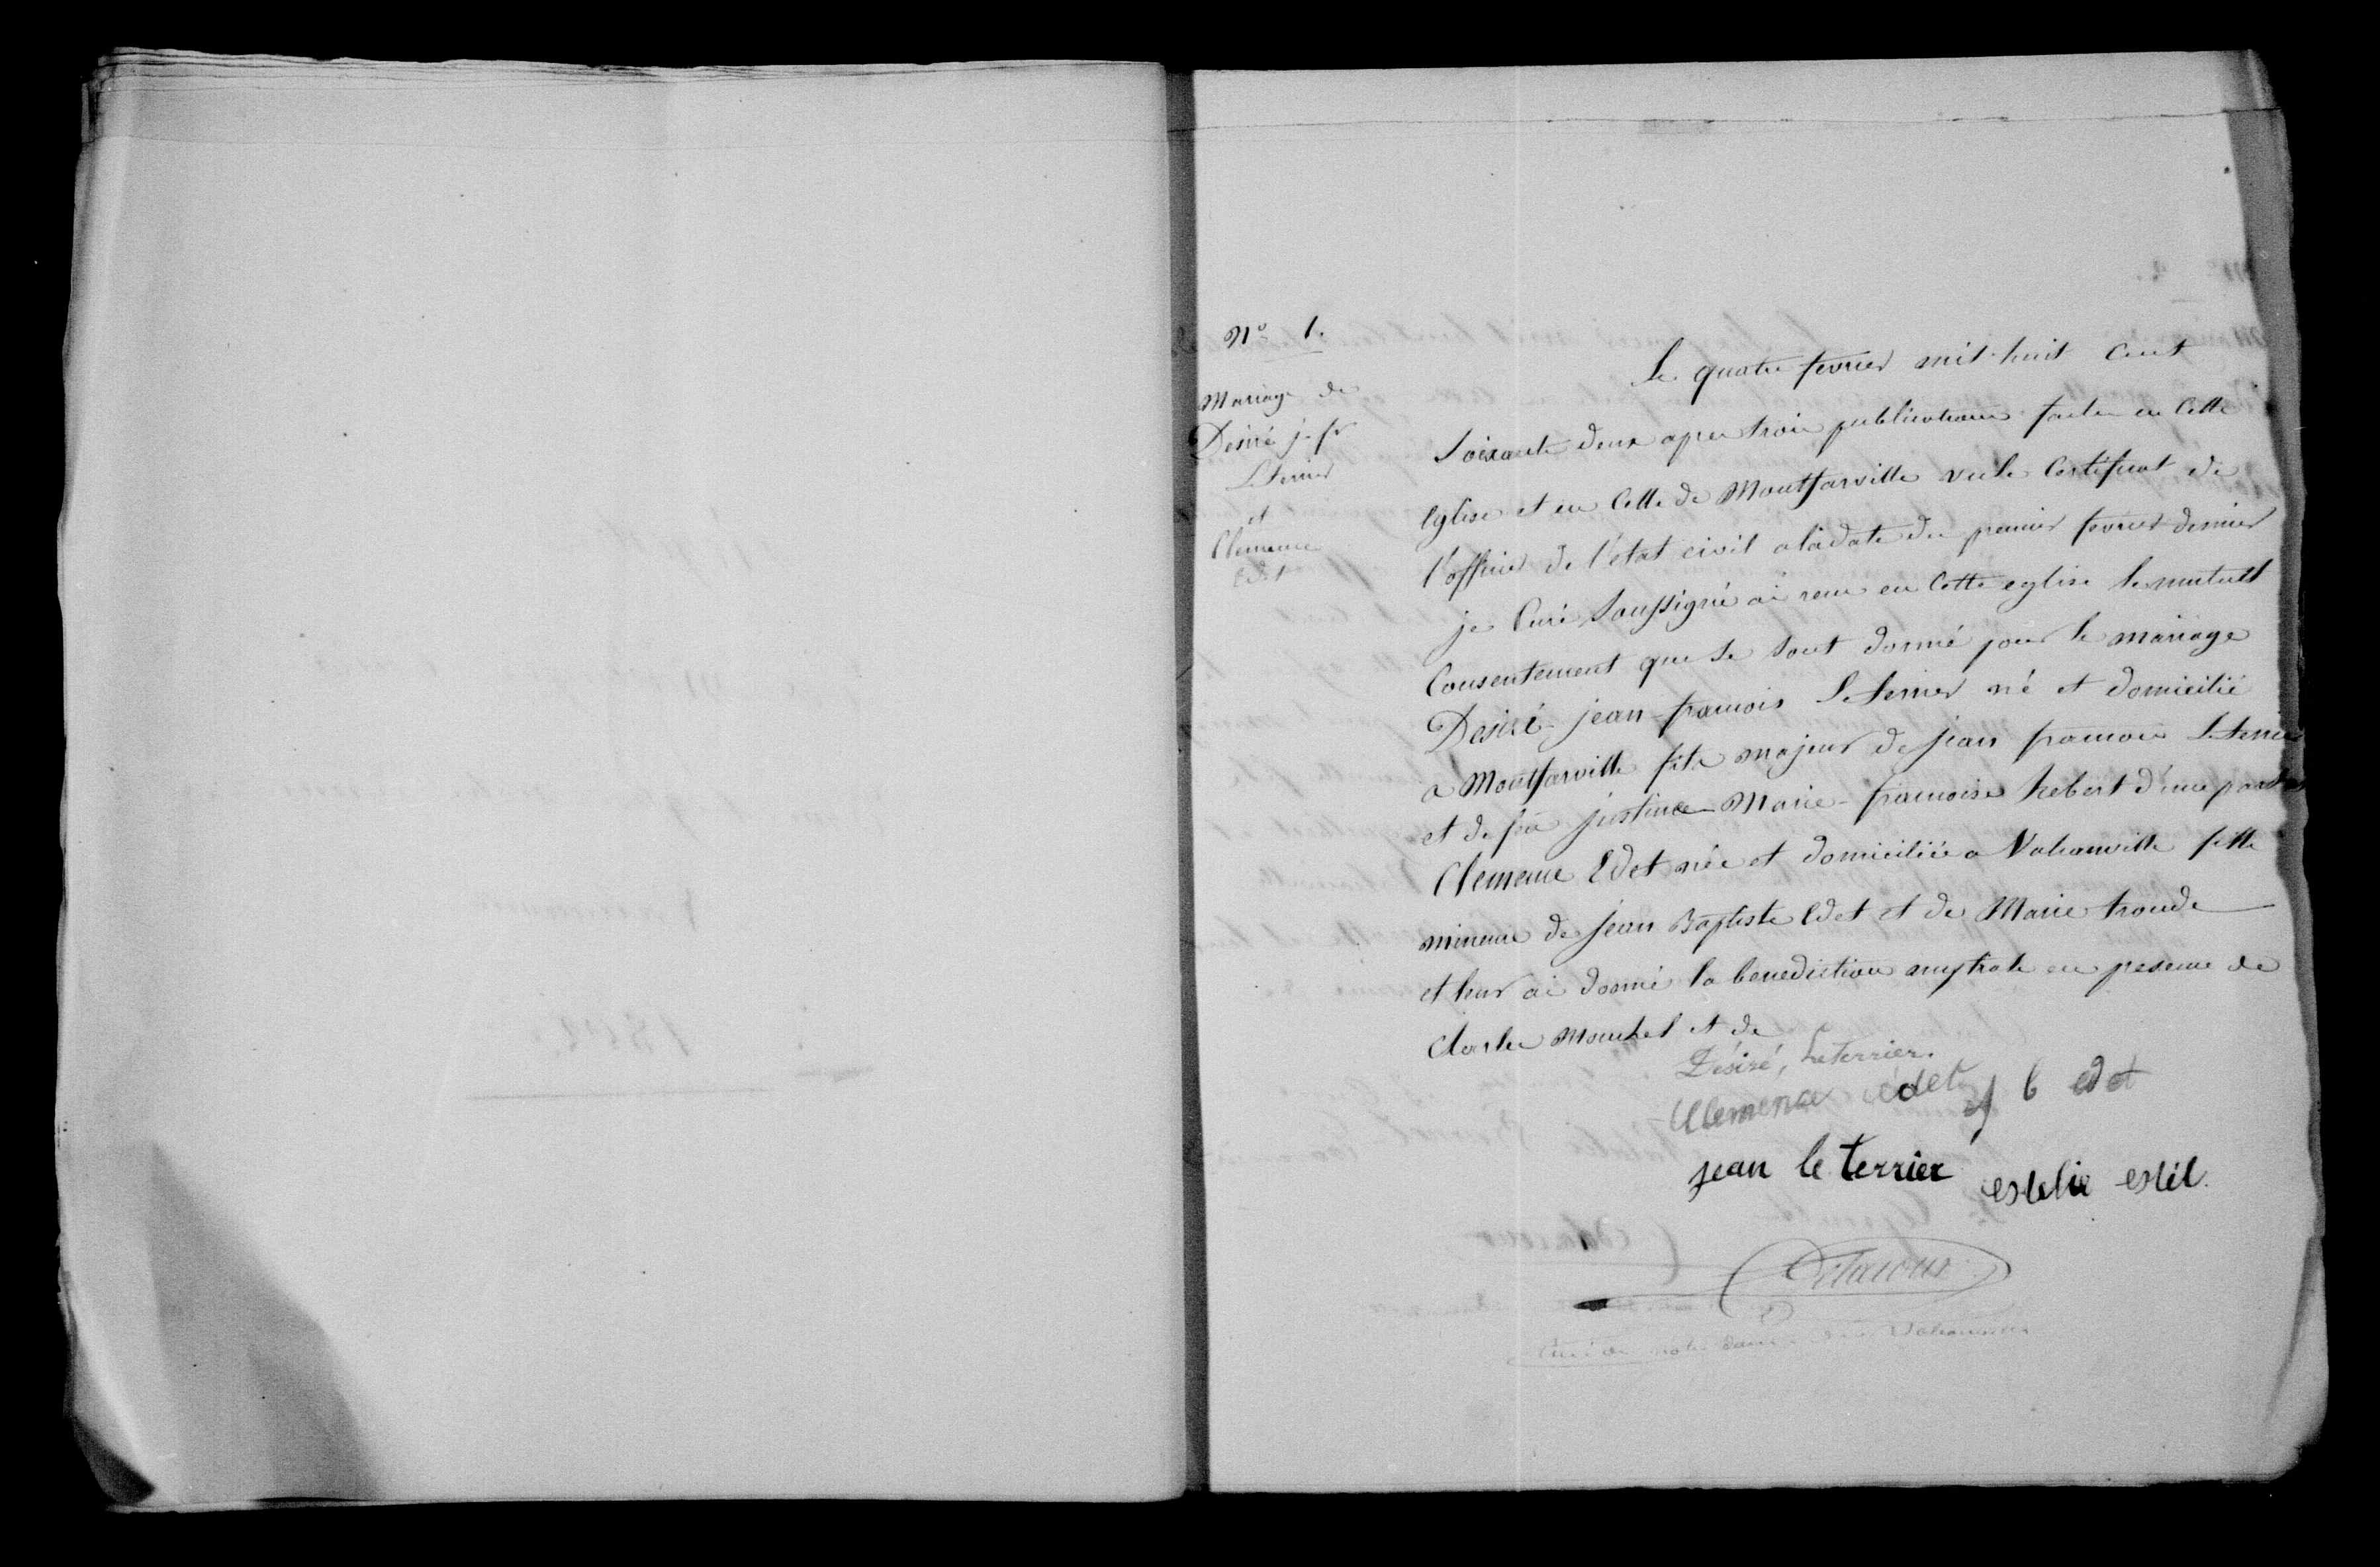 N° 1.
Mariage de
Desiré j. fr
Leterrier
et
Clemence
Edet
Le quatre fevrier mil huit cent
soixante deux apres trois publications faites en cette
eglise et en celle de Montfarville vu le certificat de
l'officier de l'etat civil a la date du premier fevrier dernier
je Curé soussigné ai recu en cette eglise le mutuel
consentement que se sont donné pour le mariage
Desiré-jean-francois Leterrier né et domicilié
a Montfarville fils majeur de jean francois Leterrier
et de feu justine-Marie-francoise hebert d'une part et
Clemence Edet née et domiciliée a Valcanville fille
mineure de jean Baptiste Edet et de Marie troude
et leur ai donné la benediction nuptiale en presence de
Charles Mouchel et de
Désiré, Leterrier.
Clemence edet j b edet
jean le terrier estelie estil.
Delacour
Curé de notre dame de Valcanville